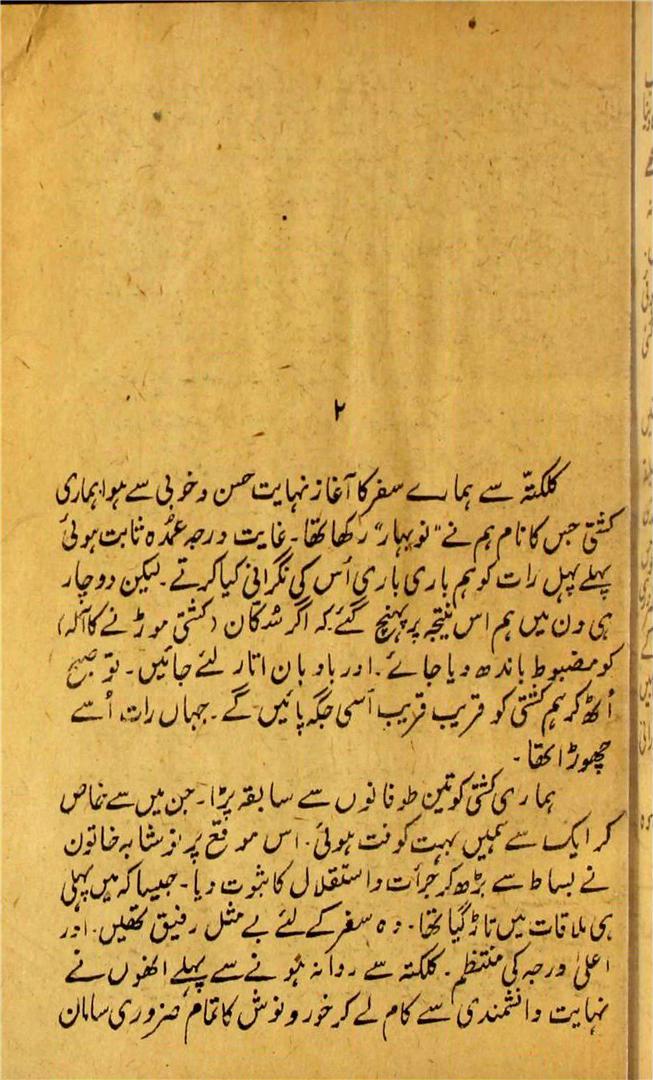 ۲
کلکتہّ سے ہمارے سفر کا آغاز نہایت حسن و خوبی سے ہوا ہماری
کشتی جس کا نام ہم نے "نوبہار" رکھا تھا۔ غایت درجہ عمُدہ ثابت ہوئی
پہلے پہل رات کو ہم باری باری اُس کی نگرانی کیا کرتے۔ لیکن دو چار
ہی دن میں ہم اس نتیجہ پر پہنچ گئے کہ اگر سُکان (کشتی موڑنے کا آلہ)
کو مضبوط باندھ دیا جائے۔ اور بادبان اتار لئے جائیں۔ تو صبح
اُٹھ کر ہم کشتی کو قریب قریب اُسی جگہ پائیں گے۔ جہاں رات اُسے
چھوڑا تھا۔
ہماری کشتی کو تین طوفانوں سے سابقہ پڑا۔ جن میں سے خاص
کر ایک سے ہمیں بہت کوفت ہوئی۔ اس موقع پر نوشابہ خاتون
نے بساط سے بڑھ کر جُرأت و استقلال کا ثبوت دیا۔ جیسا کہ میں پہلی
ہی ملاقات میں تاڑ گیا تھا۔ وہ سفر کے لئے بے مثل رفیق تھیں۔ اور
اعلیٰ درجہ کی منتظم۔ کلکتہ سے روانہ ہونے سے پہلے انھوں نے
نہایت دانشمندی سے کام لے کر خور و نوش کا تمام ضروری سامان